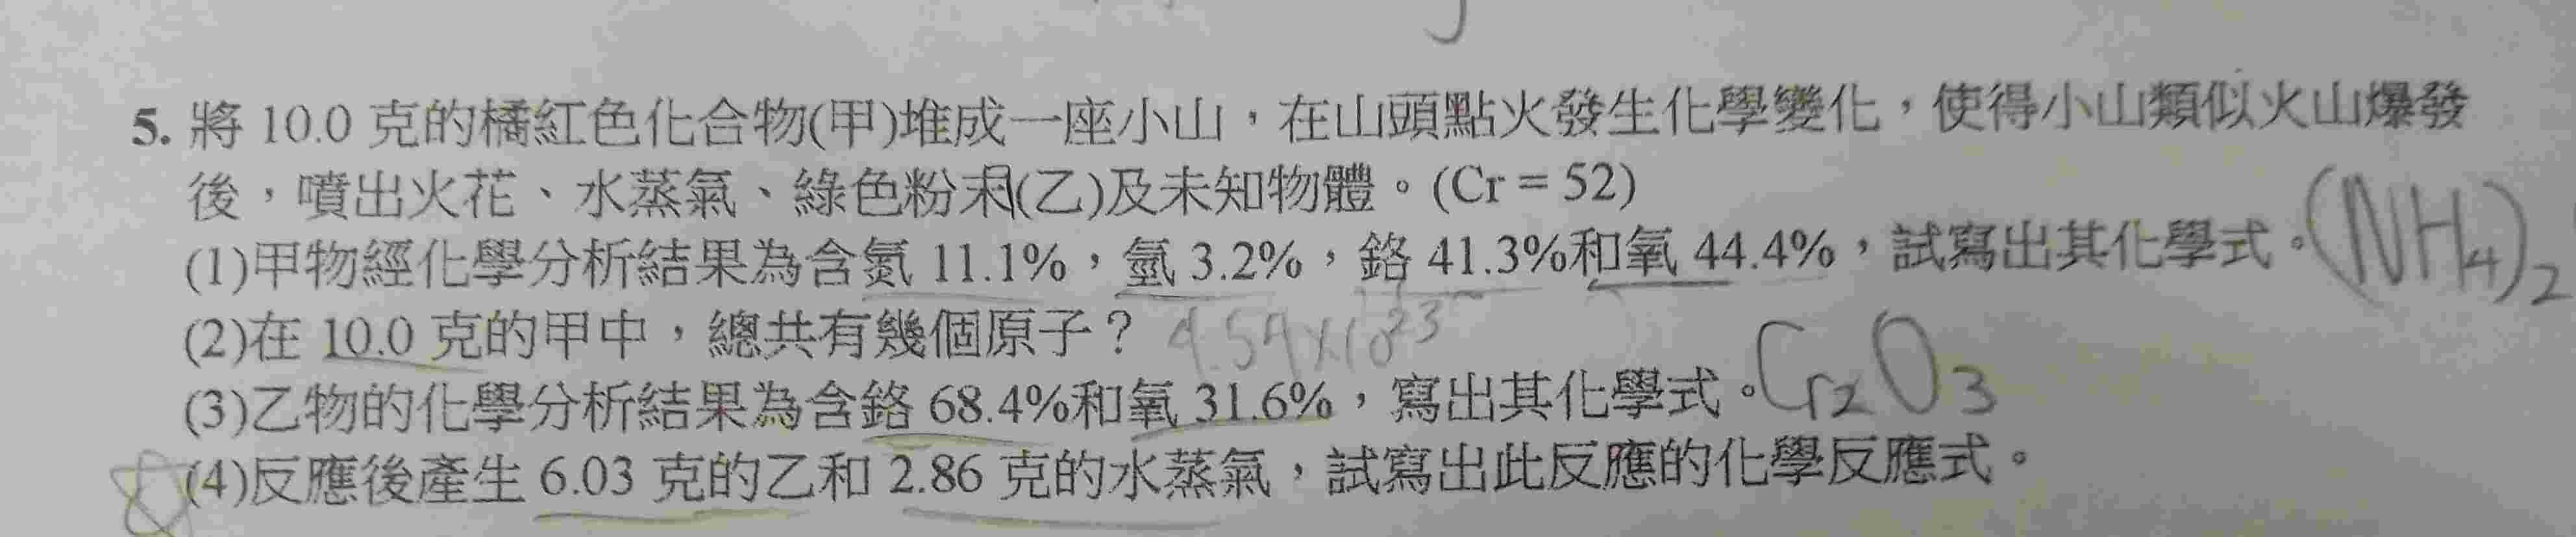 5. 將 10.0 克的橘紅色化合物(甲)堆成一座小山，在山頭點火發生化學變化，使得小山類似火山爆發
後，噴出火花、水蒸氣、綠色粉末(乙)及未知物體。(Cr = 52)
(1)甲物經化學分析結果為含氮 11.1%，氫 3.2%，鉻 41.3%和氧 44.4%，試寫出其化學式。(NH4)2
(2)在 10.0 克的甲中，總共有幾個原子？ 4.54×10^23
(3)乙物的化學分析結果為含鉻 68.4%和氧 31.6%，寫出其化學式。Cr2O3
(4)反應後產生 6.03 克的乙和 2.86 克的水蒸氣，試寫出此反應的化學反應式。